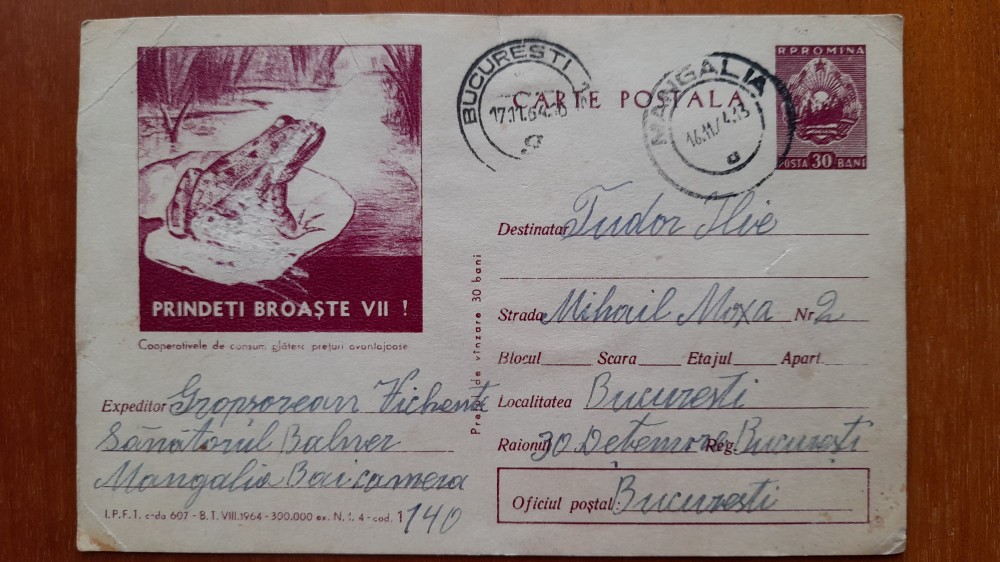 BUCURESTI
17.11.64.
g
CARTE POSTALA
MANGALIA
16.11/4.13
a
R.P.ROMINA
POSTA 30 BANI
PRINDEȚI BROAȘTE VII !
Cooperativele de consum plătesc prețuri avantajoase
Expeditor Gropsorean Vichente
Sănatoriul Balner
Mangalia Bai camera
140
I.P.F.1. c-da 607 - B.T. VIII.1964 - 300.000 ex. N.1. 4 - cod. 1
Prețul de vînzare 30 bani
Destinatar Tudor Ilie
Strada Mihail Moxa Nr 2
Blocul Scara Etajul Apart.
Localitatea Bucuresti
Raionul 30 Decemvre Reg. București
Oficiul poștal: Bucuresti